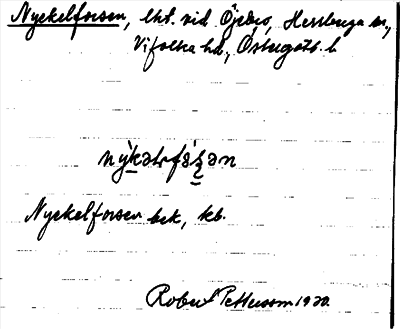 Nyckelforsen, lht. vid Öjebro, Herrberga sn,
Vifolka hd, Östergötl. l.
Nyckelforsen bek, kb.
Robert Pettersson 1920.